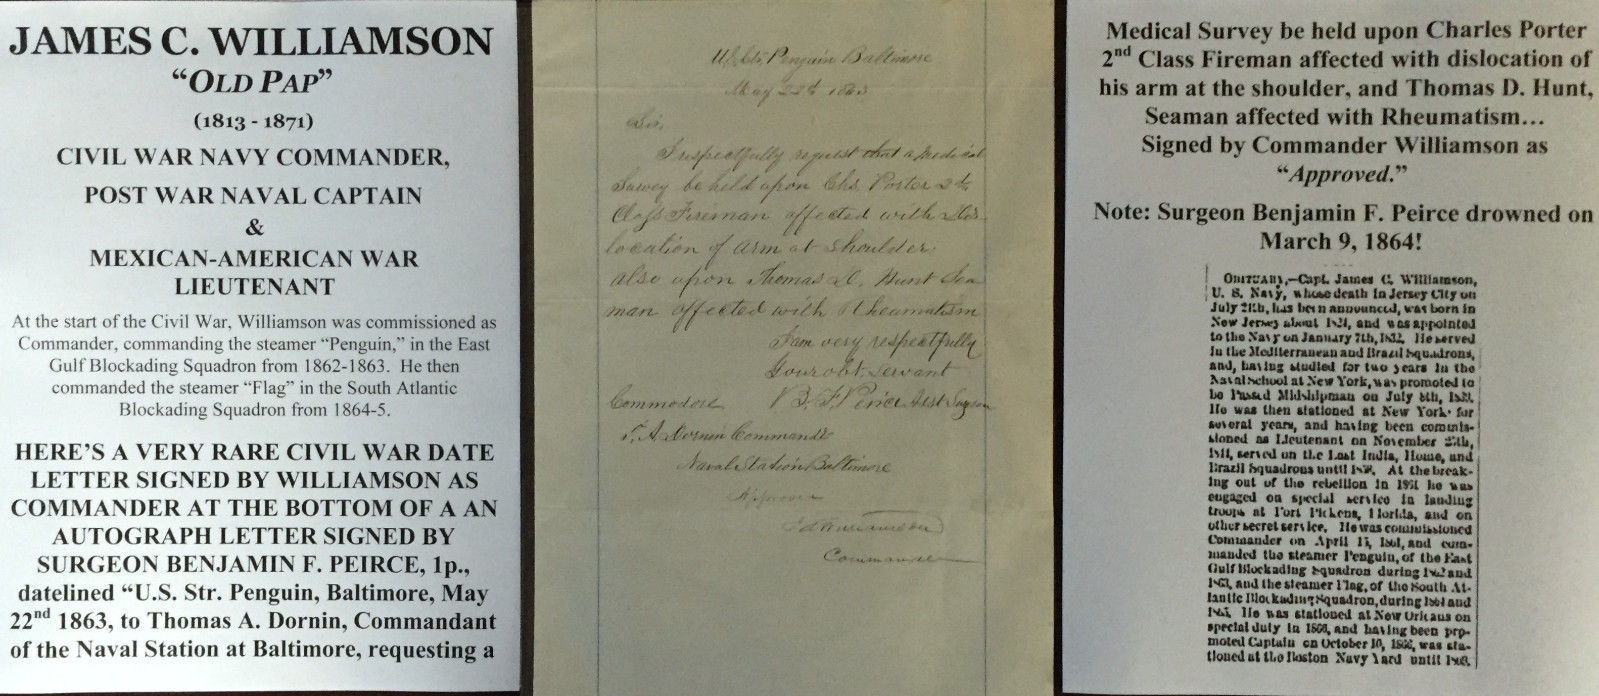 JAMES C. WILLIAMSON
“OLD PAP”
(1813 - 1871)
CIVIL WAR NAVY COMMANDER,
POST WAR NAVAL CAPTAIN
&
MEXICAN-AMERICAN WAR
LIEUTENANT
At the start of the Civil War, Williamson was commissioned as
Commander, commanding the steamer “Penguin,” in the East
Gulf Blockading Squadron from 1862-1863. He then
commanded the steamer “Flag” in the South Atlantic
Blockading Squadron from 1864-5.
HERE’S A VERY RARE CIVIL WAR DATE
LETTER SIGNED BY WILLIAMSON AS
COMMANDER AT THE BOTTOM OF A AN
AUTOGRAPH LETTER SIGNED BY
SURGEON BENJAMIN F. PEIRCE, 1p.,
datelined “U.S. Str. Penguin, Baltimore, May
22nd 1863, to Thomas A. Dornin, Commandant
of the Naval Station at Baltimore, requesting a
U.S. Str. Penguin Baltimore
May 22d 1863
Sir,
I respectfully request that a Medical
Survey be held upon Chs. Porter 2d
Class Fireman affected with dis-
location of arm at shoulder.
also upon Thomas D. Hunt Sea
man affected with Rheumatism
I am very respectfully
Your obt. servant
Commodore B. F. Peirce Asst Surgeon
T. A. Dornin Commandt
Naval Station Baltimore
Approved
Commander
Medical Survey be held upon Charles Porter
2nd Class Fireman affected with dislocation of
his arm at the shoulder, and Thomas D. Hunt,
Seaman affected with Rheumatism…
Signed by Commander Williamson as
“Approved.”
Note: Surgeon Benjamin F. Peirce drowned on
March 9, 1864!
OBITUARY,—Capt. James C. Williamson,
U. S. Navy, whose death in Jersey City on
July has been announced, was born in
New Jersey about and was appointed
to the Navy on January 7th, 1832. He served
in the Mediterranean and Brazil Squadrons,
and, having studied for two years in the
Naval School at New York, was promoted to
be Passed Midshipman on July 8th,
He was then stationed at New York for
several years, and having been commis-
sioned as Lieutenant on November
served on the East India, Home, and
Brazil Squadrons until At the break-
ing out of the rebellion in 1861 he was
engaged on special service in landing
troops at Fort Pickens, Florida, and on
other secret service. He was commissioned
Commander on April and com-
manded the steamer Penguin, of the East
Gulf Blockading Squadron during 1862 and
1863, and the steamer Flag, of the South At-
lantic Blockading Squadron, during 1864 and
1865. He was stationed at New Orleans on
special duty in 1866, and having been pro-
moted Captain on October 10, 1866, was sta-
tioned at the Boston Navy Yard until